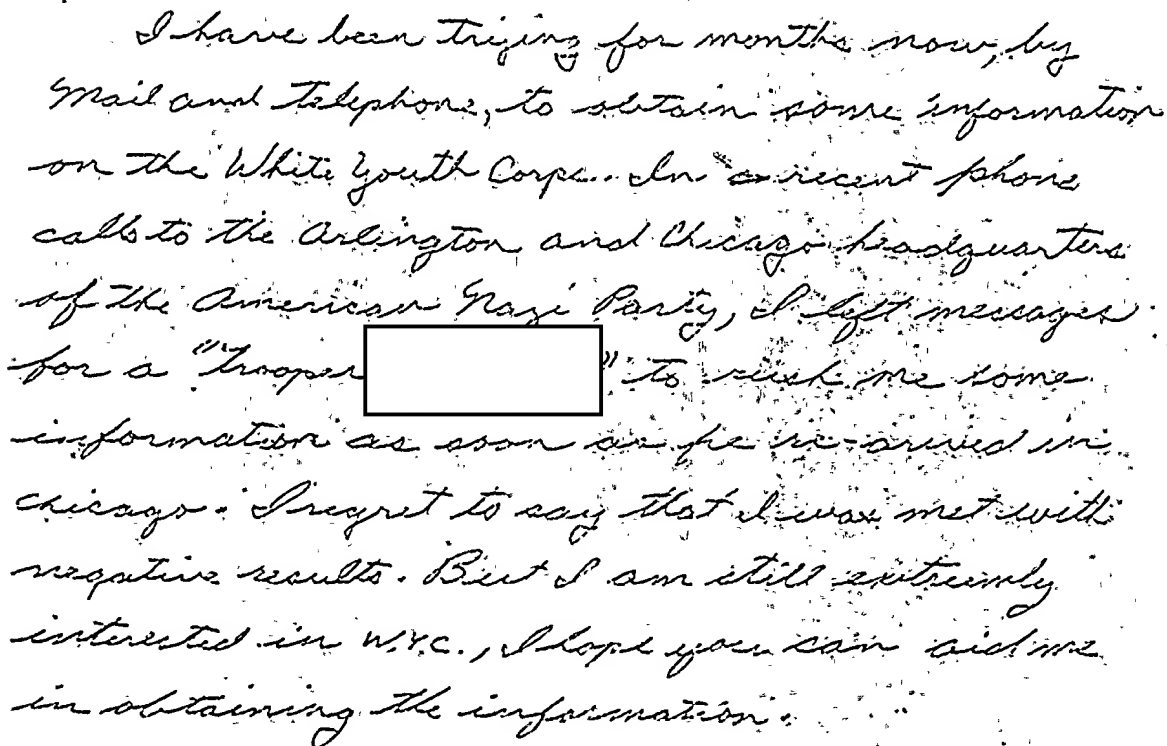 I have been trying for months now, by
Mail and telephone, to obtain some information
on the White Youth Corps. In recent phone
calls to the Arlington and Chicago headquarters
of the American Nazi Party, I left messages
for a "Trooper " to rush me some
information as soon as he re-arived in
chicago. I regret to say that I was met with
negative results. But I am still extreemly
interested in W.Y.C., I hope you can aid me
in obtaining the information.